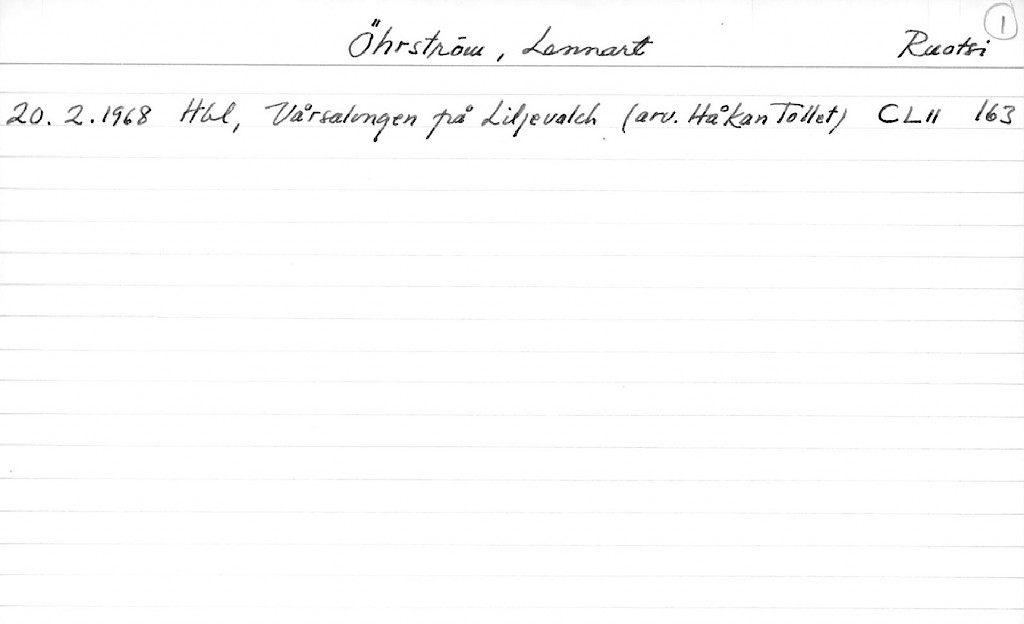 Öhrström, Lennart Ruotsi 1
20.2.1968 Hbl, Vårsalongen på Liljevalch (arv. Håkan Tollet) CLII 163